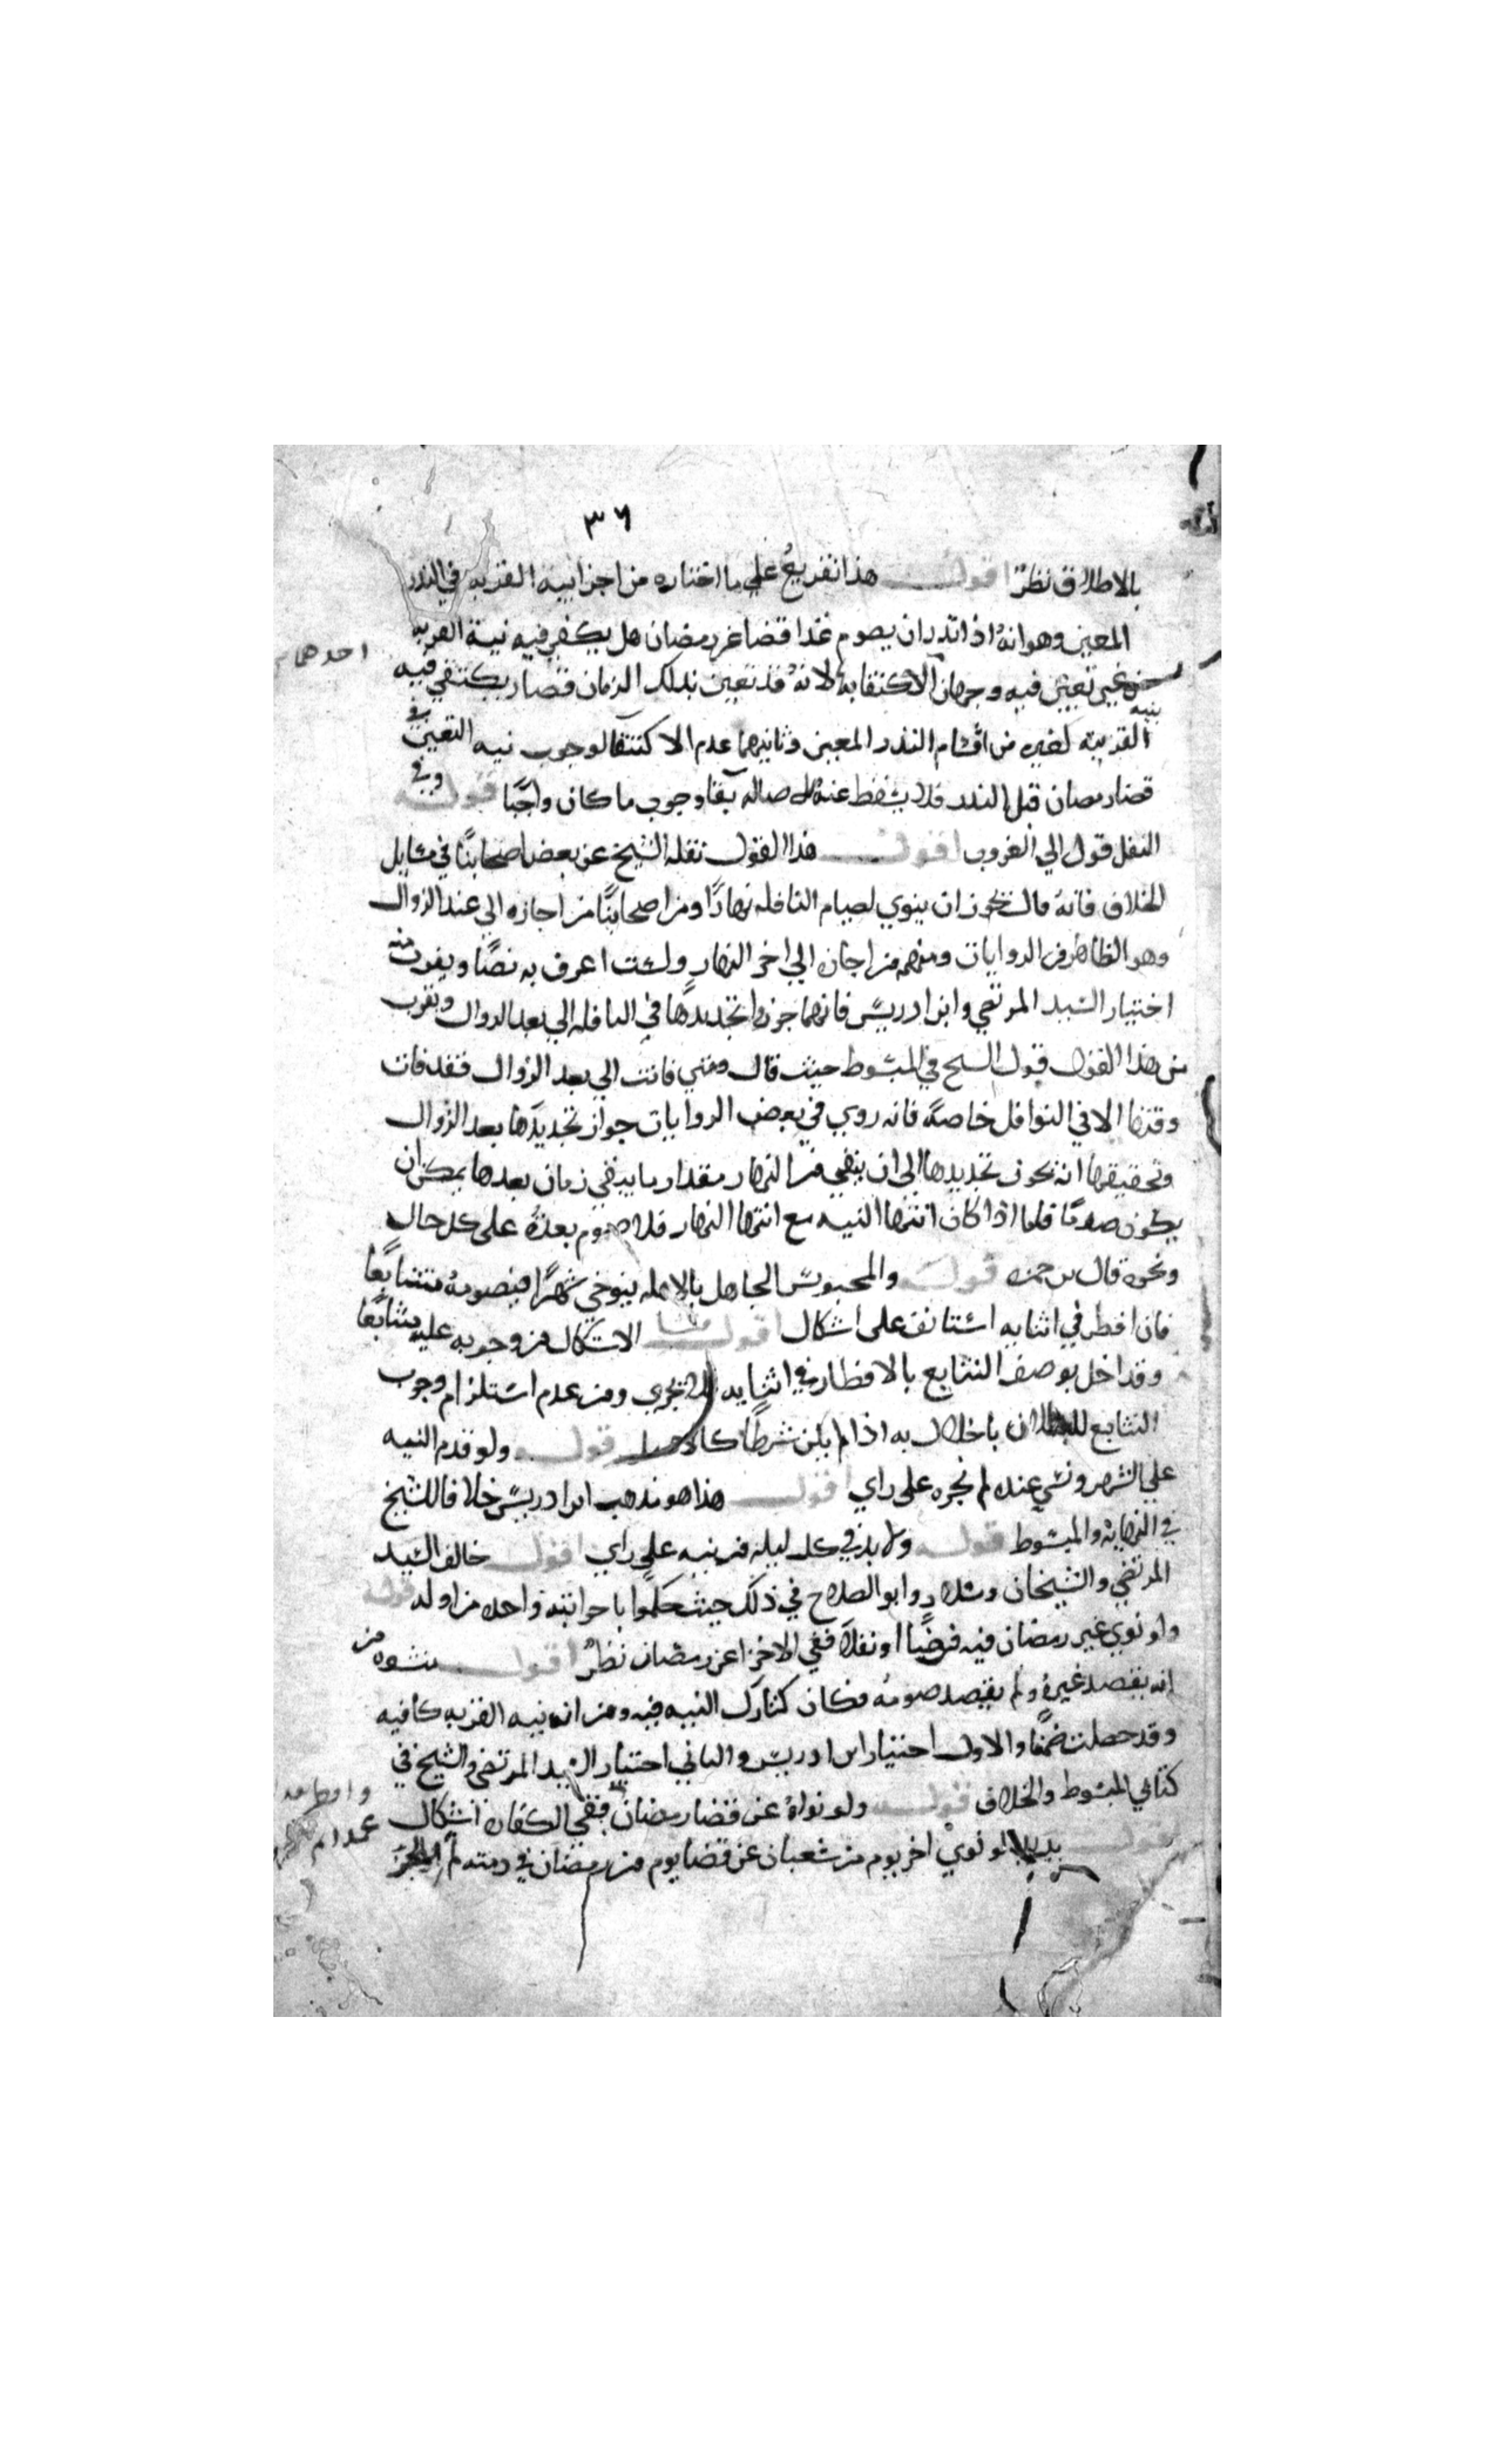 ٣٦
بالاطلاق نظرٌ اقول هذا تفريعٌ على ما اختاره من اجزا نية القربه في النذر
المعين وهو انهُ اذا نذر ان يصوم غدا قضا عن رمضان هل يكفي فيه نية القربه
من غير تعيين فيه وجهان الاكتفا به لانهُ قد تعين بذلك الزمان فصار يكتفي فيه
احدهما
بنيه
القربة كغيره من اقسام النذر المعين وثانيهما عدم الاكتفا لوجوب نيه التعيين في
قضا رمضان قبل النذر فلا يسقط عنهُ اصاله بقا وجوب ما كان واجبًا قوله وفي
النفل قول الي الغروب اقول هذا القول نقله الشيخ عن بعض اصحابنا في مسايل
الخلاف فانهُ قال تجوز ان ينوي لصيام النافله نهارًا ومن اصحابنا من اجازه الي عند الزوال
وهو الظاهر في الروايات ومنهم من اجازه الي اخر النهار ولست اعرف به نصًا ويقرب منه
اختيار السيد المرتضي وابن ادريس فانهما جوزا تجديدها في النافله الي بعد الزوال ويقرب
من هذا القول قول الشيخ في المبسوط حيث قال ومتي فاتت الي بعد الزوال فقد فات
وقتها الا في النوافل خاصةً فانه روي في بعض الروايات جواز تجديدها بعد الزوال
وتحقيقها انه يجوز تجديدها الى ان يبقي من النهار مقدار ما يبقي زمان بعدها يمكن ان
يكون صومًا فاما اذا كان انتها النيه مع انتها النهار فلا صوم بعدهُ على كل حال
ونحوه قال بن حمزه قوله والمحبوس الجاهل بالاهله يتوخي شهرًا فيصومهُ متتابعًا
فان افطر في اثنايه استانف على اشكال اقول منشا الاشكال من وجوبه عليه متتابعًا
وقد اخل بوصف التتابع بالافطار في اثنايه فلا يجزي ومن عدم استلزام وجوب
التتابع للبطلان باخلال به اذا لم يكن شرطًا كالاصل قوله ولو قدم النيه
علي الشهر ونسي عنده لم يجزه على راي اقول هذا هو مذهب ابن ادريس خلافا للشيخ
في النهاية والمبسوط قوله ولا بد في كل ليله من نيه على راي اقول خالف السيد
المرتضي والشيخان وسلار وابو الصلاح في ذلك حيث حكموا باجزا نية واحده من اوله قوله
ولو نوي غير رمضان فيه فرضًا او نفلًا ففي الاجزا عن رمضان نظرٌ اقول منشوه من
انه يقصد غيرهُ ولم يقصد صومهُ فكان كتارك النيه فيه ومن انه نيه القربه كافيه
وقد حصلت ضمنًا والاول اختيار ابن ادريس والثاني اختيار السيد المرتضي والشيخ في
كتابي المبسوط والخلاف قوله ولو نواهُ عن قضا رمضان ففي الكفاره اشكال
وافطر
اقول يريد لو نوي اخر يوم من شعبان عن قضا يوم من رمضان في ذمته ثم
عمدا